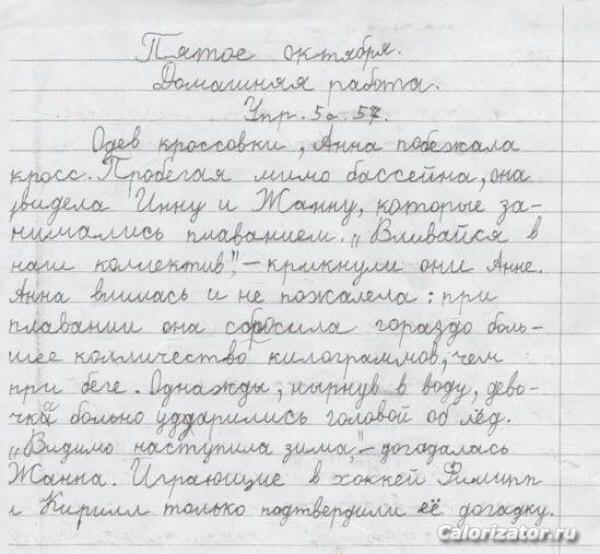 Пятое октября.
Домашняя работа.
Упр. 5 с. 57.
Одев кроссовки, Анна побежала
кросс. Пробегая мимо бассейна, она
увидела Инну и Жанну, которые за-
нимались плаванием. „Вливайся в
наш коллектив", – крикнули они Анне.
Анна влилась и не пожалела: при
плавании она сбросила гораздо боль-
шее колличество килограммов, чем
при беге. Однажды, нырнув в воду, дево-
чка больно уддарились головой об лёд.
„Видимо наступила зима", – догадалась
Жанна. Играющие в хоккей Филипп
и Кирилл только подтвердили её догадку.
Calorizator.ru